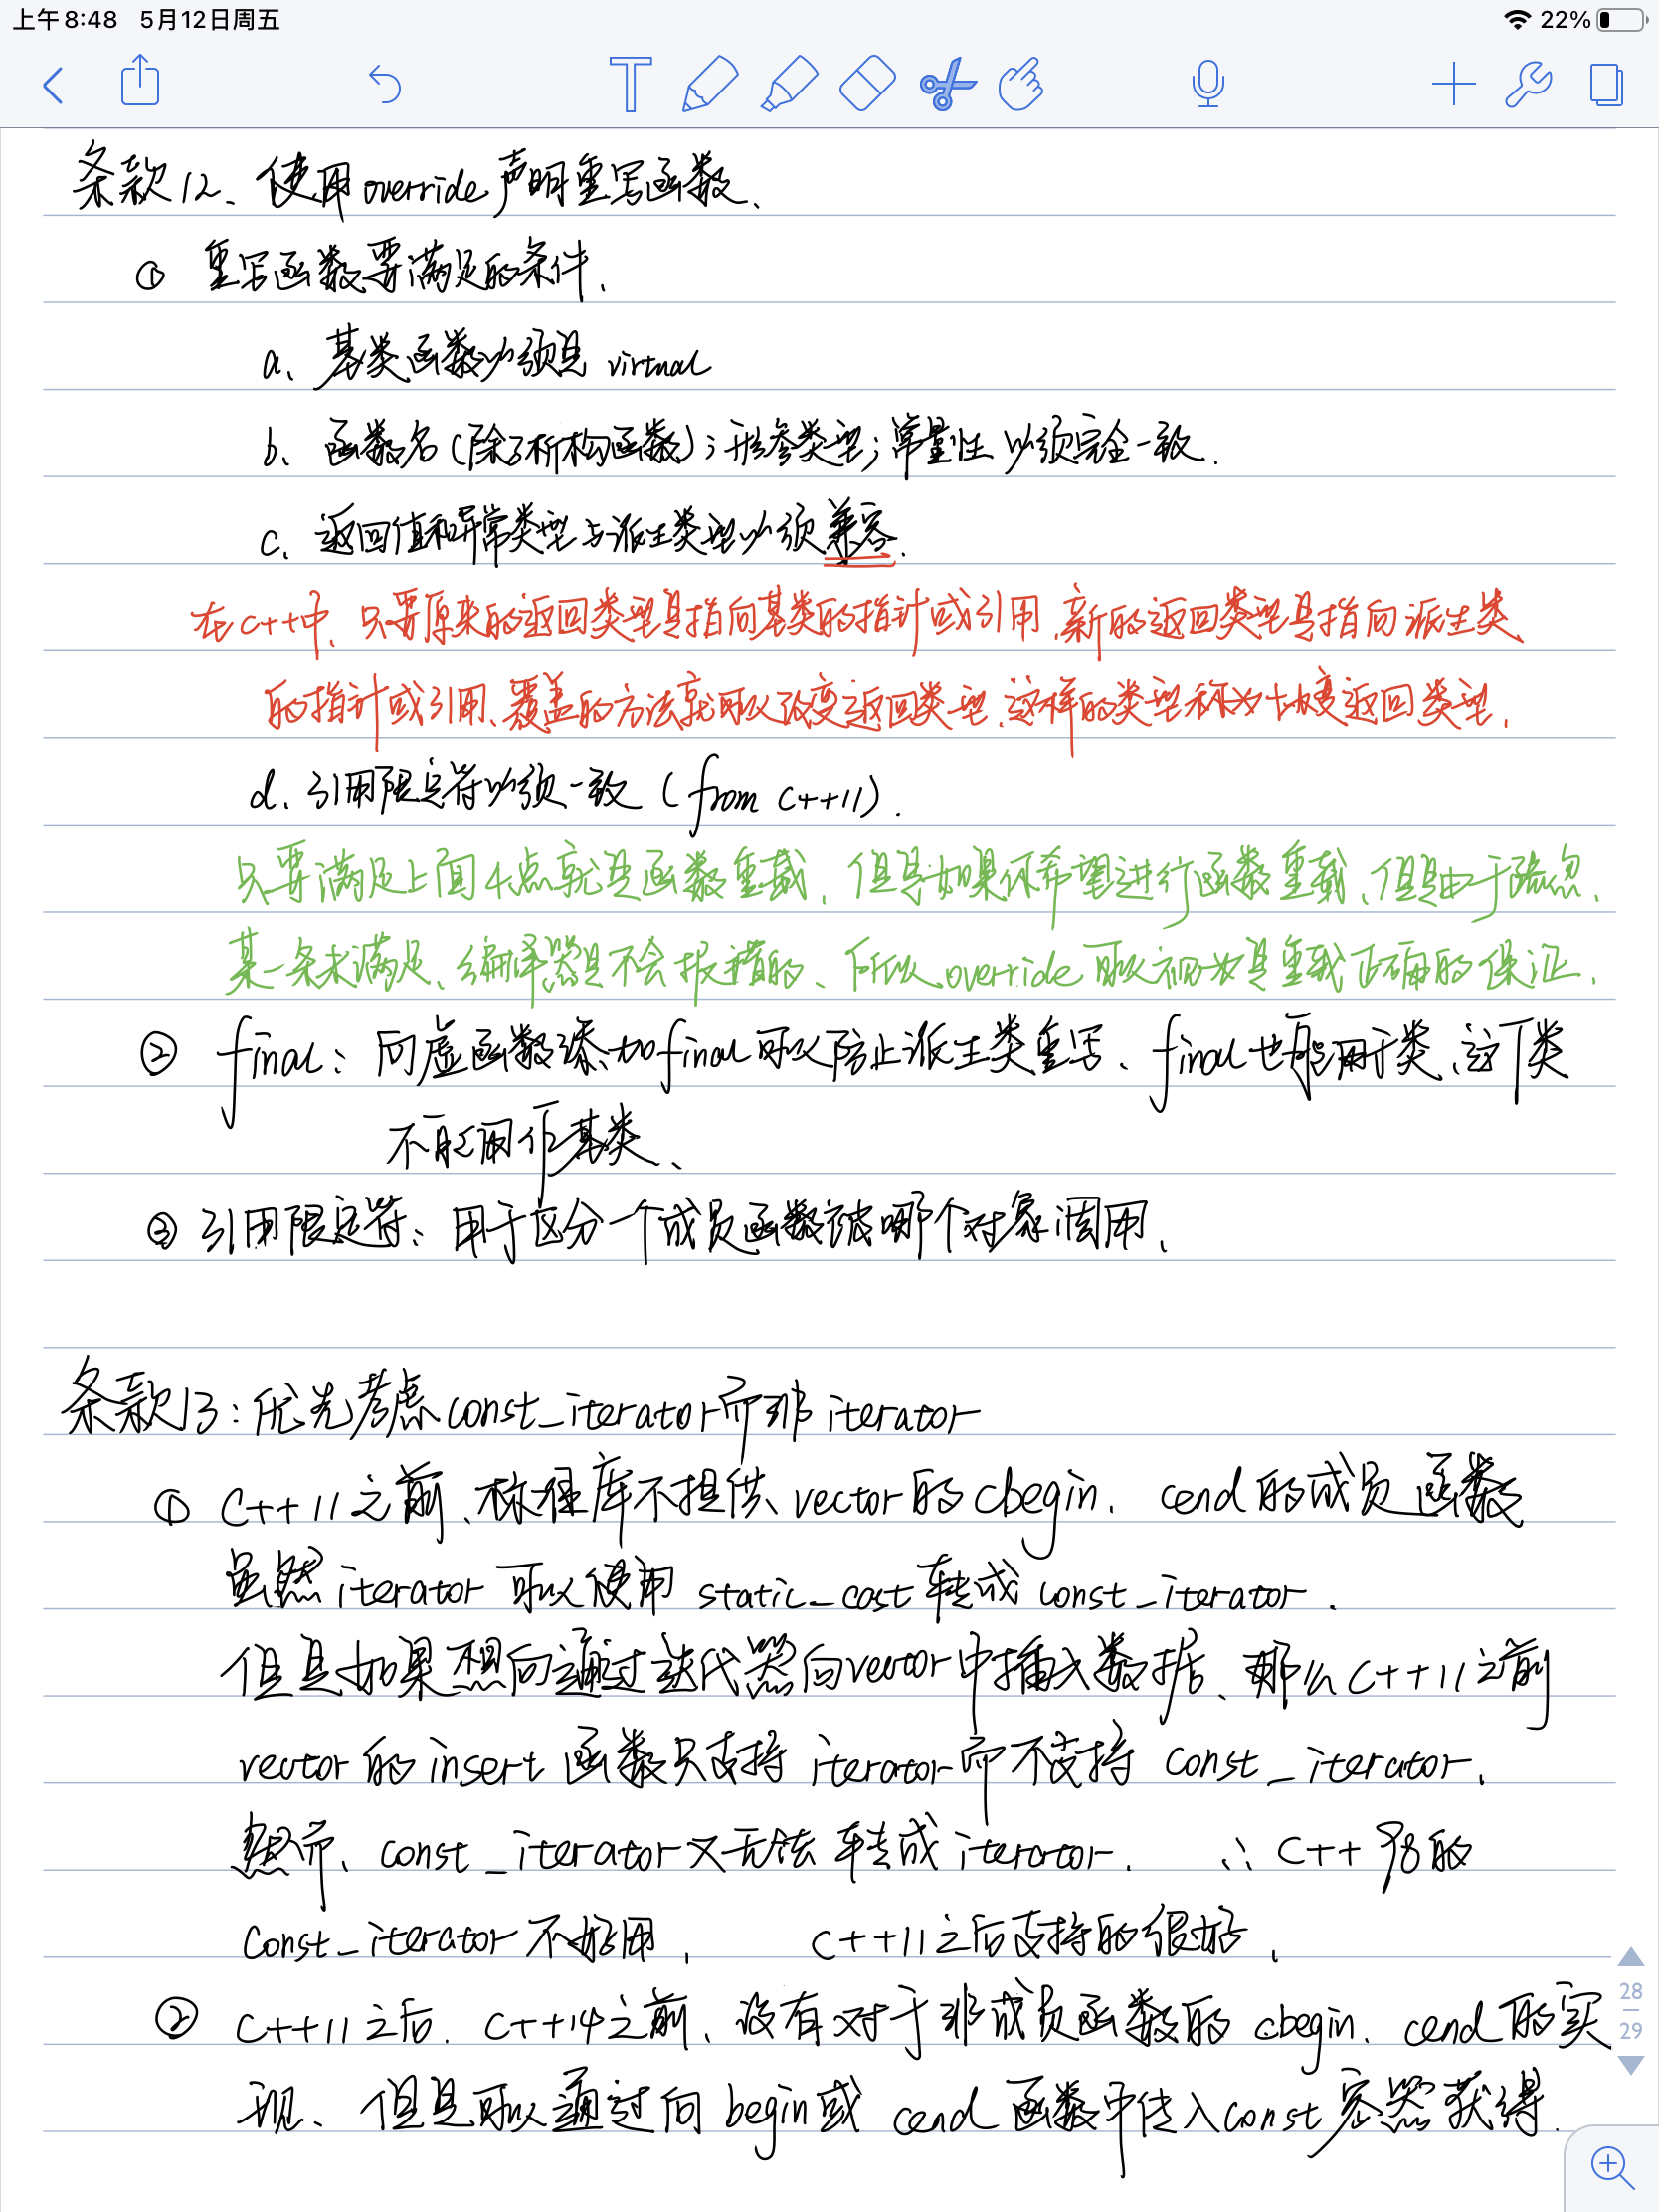 上午8:48 5月12日周五
22%
条款12、使用override声明重写函数、
① 重写函数要满足的条件.
a、基类函数必须是 virtual
b、函数名(除了析构函数);形参类型;常量性 必须完全一致.
c、返回值和异常类型与派生类型必须兼容.
在C++中、只要原来的返回类型是指向基类的指针或引用、新的返回类型是指向派生类
的指针或引用、覆盖的方法就可以改变返回类型、这样的类型称为协变返回类型.
d、引用限定符必须一致 (from C++11).
只要满足上面4点就是函数重载、但是如果你希望进行函数重载、但是由于疏忽、
某一条未满足、编译器是不会报错的、所以override可以视为是重载正确的保证.
② final: 向虚函数添加final可以防止派生类重写、final也能用于类、这个类
不能用作基类、
③ 引用限定符: 用于区分一个成员函数被哪个对象调用、
条款13:优先考虑const_iterator而非 iterator
① C++11之前、标准库不提供 vector的cbegin、cend的成员函数
虽然iterator 可以使用 static_cast转成 const_iterator.
但是如果想向通过迭代器向vector中插入数据、那么C++11之前
vector 的 insert 函数只支持 iterator而不支持 const_iterator、
然而、const_iterator又无法 转成iterator. ∴ C++98的
const_iterator不好用. C++11之后支持的很好.
② C++11之后. C++14之前、没有对于非成员函数的 cbegin. cend的实
现、但是可以通过向 begin或 cend 函数中传入const容器获得.
28
29